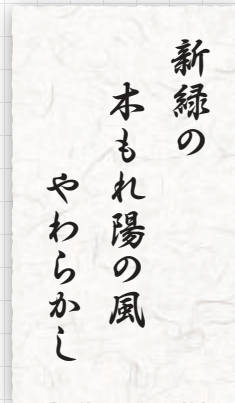 新緑の
木もれ陽の風
やわらかし